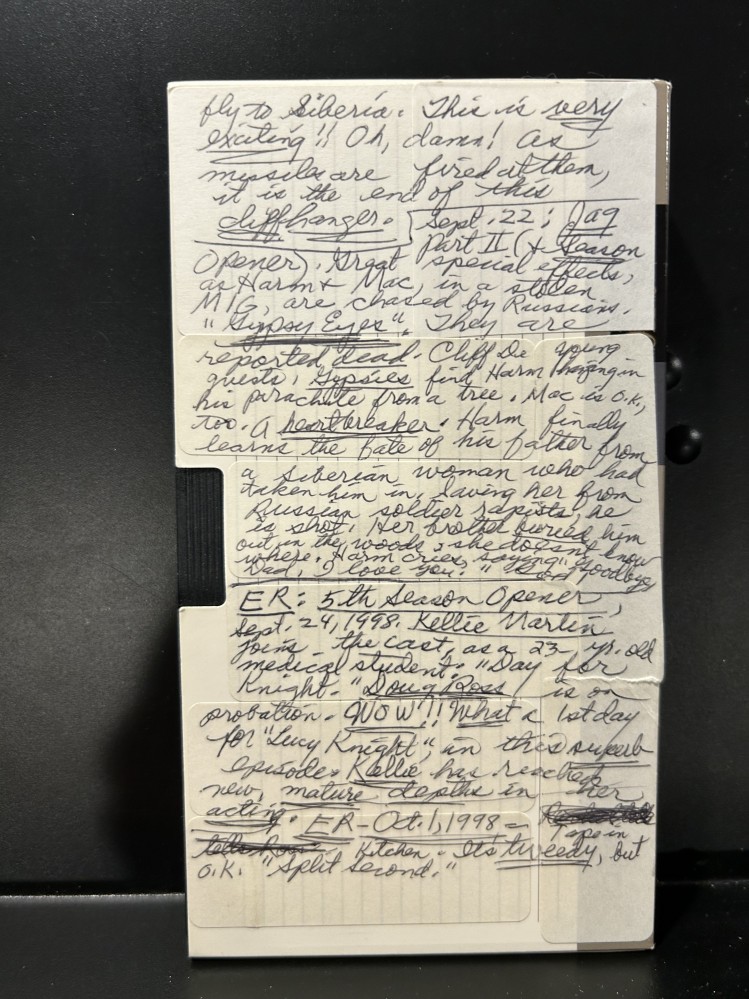 fly to Siberia. This is very
exciting!! Oh, damn! As
missiles are fired at them,
it is the end of this
cliffhanger. Sept. 22: Jag
Part II (+ Season
Opener). Great special effects,
as Harm + Mac, in a stolen
MIG, are chased by Russians.
"Gypsy Eyes". They are
reported dead. Cliff De Young
guests. Gypsies find Harm hanging in
his parachute from a tree. Mac is O.K.,
too. A heartbreaker. Harm finally
learns the fate of his father from
a Siberian woman who had
taken him in. Saving her from
Russian soldier rapists, he
is shot. Her brother buried him
out in the woods & she doesn't know
where. Harm cries, saying, "Goodbye,
Dad, I love you."
ER: 5th Season Opener,
Sept. 24, 1998. Kellie Martin
joins the cast, as a 23-yr. old
medical student. "Day for
Knight." Doug Ross is on
probation. WOW!! What a 1st day
for "Lucy Knight", in this superb
episode. Kellie has reached
new, mature depths in her
acting. ER-Oct. 1, 1998 =
Tape in
Kitchen. It's tweedy, but
O.K. "Split Second."